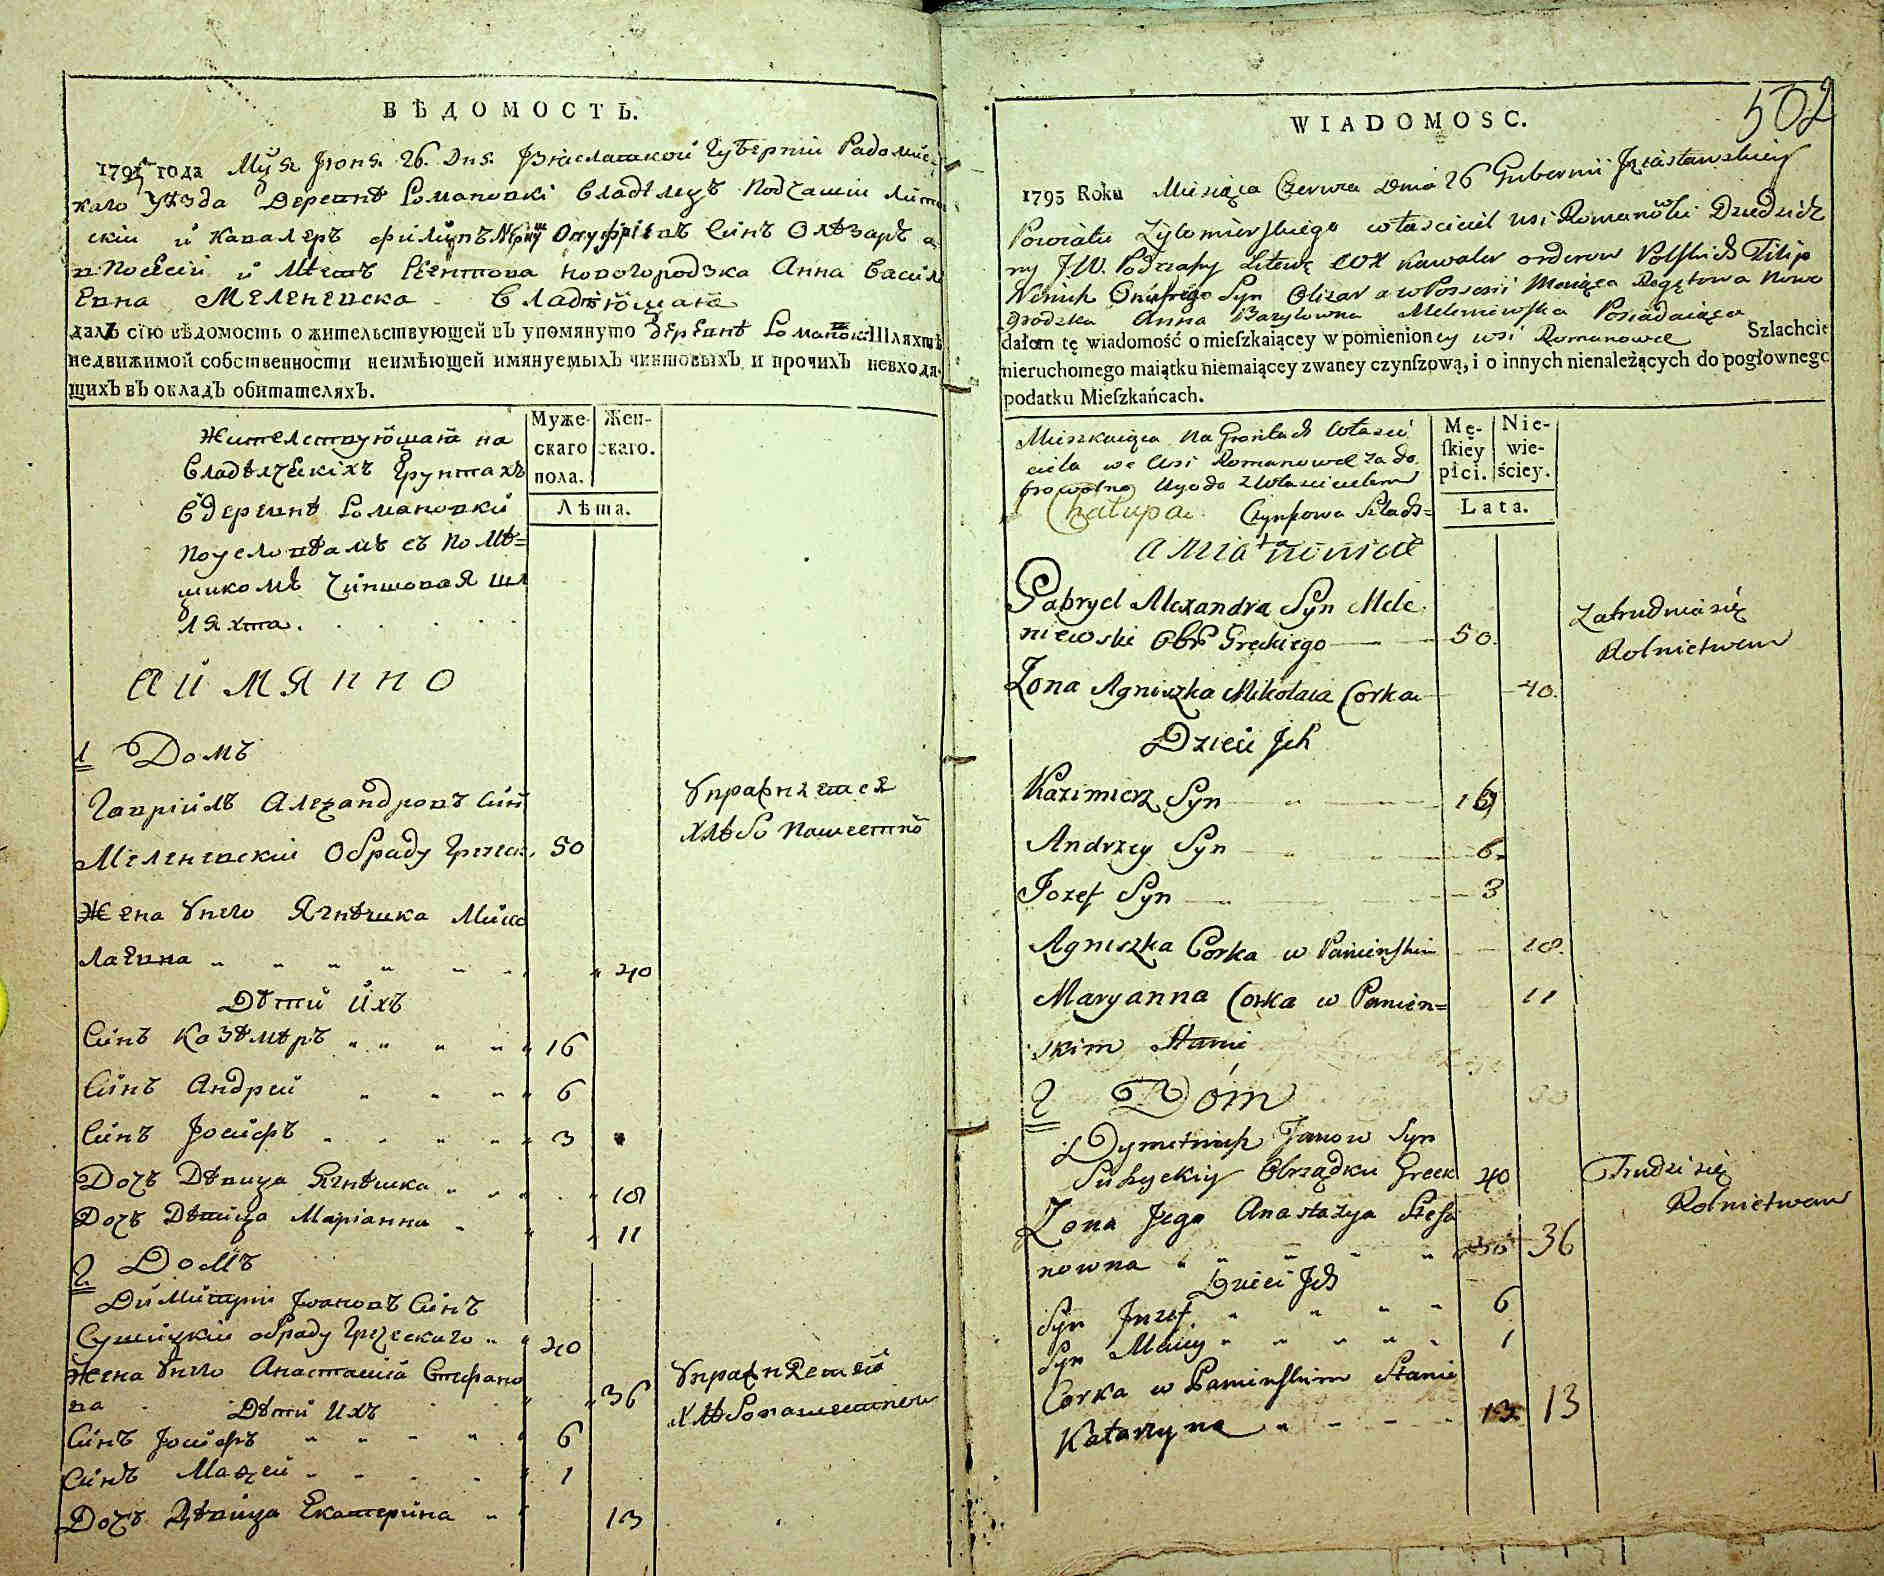 ВѢДОМОСТЬ.
1795 года Мца Іюня 26. Дня. Ізяславской Губерніи Радомис
каго Уѣзда Деревнѣ Романовки Владѣлецъ Подчашіи Литов
скіи и Кавалеръ Филипъ Онуфріевъ Синъ Олѣзаръ а
в Посесіи и Мѣсть Реентова Новогородзка Анна Васил
Евна Меленевска Владѣющая
далъ сїю вѣдомость о жительствующей въ упомянуто Деревнѣ Романовки Шляхтѣ
недвижимой собственности неимѣющей имянуемыхъ чиншовыхъ и прочихъ невходя-
щихъ въ окладъ обитателяхъ.
Муже-
скаго
пола.
Жен-
скаго.
Лѣта.
Жителствующая на
Владѣлческихъ Грунтахъ
В деревнѣ Романовки
по условіямъ съ помѣ=
щикомъ Чиншовая шл
яхта.
а имянно
1 Домъ
Гавріилъ Александровъ Син
Меленевскіи Обряду Греческ. 50
Упражняется
Хлѣбопашествo
Жена у него Ягнѣшка Мико
лаевна 40
Дѣти ихъ
Синъ Казѣмѣръ 16
Синъ Андреи 6
Синъ Іосифъ 3
Дочъ Дѣвица Ягнѣшка 18
Дочъ Дѣвица Маріанна 11
2 Домъ
Димитріи Івановъ Синъ
Сушицкіи обряду Греческаго 40
Жена у него Анастасія Стефано
вна 36
Упражняется
Хлѣбопашеством
Дѣти ихъ
Синъ Іосифъ 6
Синъ Мацеи 1
Дочъ Дѣвица Екатерина 13
502
WIADOMOSC.
1795 Roku Miesiąca Czerwca Dnia 26 Gubernii Jzasławskiey
Powiatu Zytomierskiego własciciel wsi Romanówki Dziedzicz
ny JW. Podczaszy Litewz Kawaler orderow Polskich Filip
Onufrego Syn Olizar a w Possesii Bazylowna Nowo
grodzka Anna Bazylowna Meleniewska Posiadaiąca
dałam tę wiadomość o mieſzkaiącey w pomienioney wsi Romanowce Szlachcie
nieruchomego maiątku niemaiącey zwaney czynſzową, i o innych nienależących do pogłownego
podatku Mieſzkańcach.
Mę-
ſkiey
płci.
Nie-
wie-
ściey.
Lata.
Mieszkaiąca na Gruntach własci
ciela we wsi Romanowce za do
browolną ugodą z własicielem
Chałupa Czynszowa Szlach=
ta
a Mianowicie
Gabryel Alexandra Syn Mele
niewski Obr. Greckiego 50.
Zatrudnia się
Rolnictwem
Zona Agniszka Mikołaia Corka 40.
Dzieci Jch
Kazimierz Syn 16
Andrzey Syn 6
Jozef Syn 3
Agniszka Corka w Panienskim 18.
Maryanna Corka w Panien=
skim Stanie 11
2 Dóm
Dymetriusz Janow Syn
Suszyckiy Obrządku Greck 40
Trudzi się
Rolnictwem
Zona Jego Anastazya Stefa
nowna 36
Dzieci Jch
Syn Jozef 6
Syn Maciey 1
Corka w Paninskim Stanie
Katarzyna 13 13